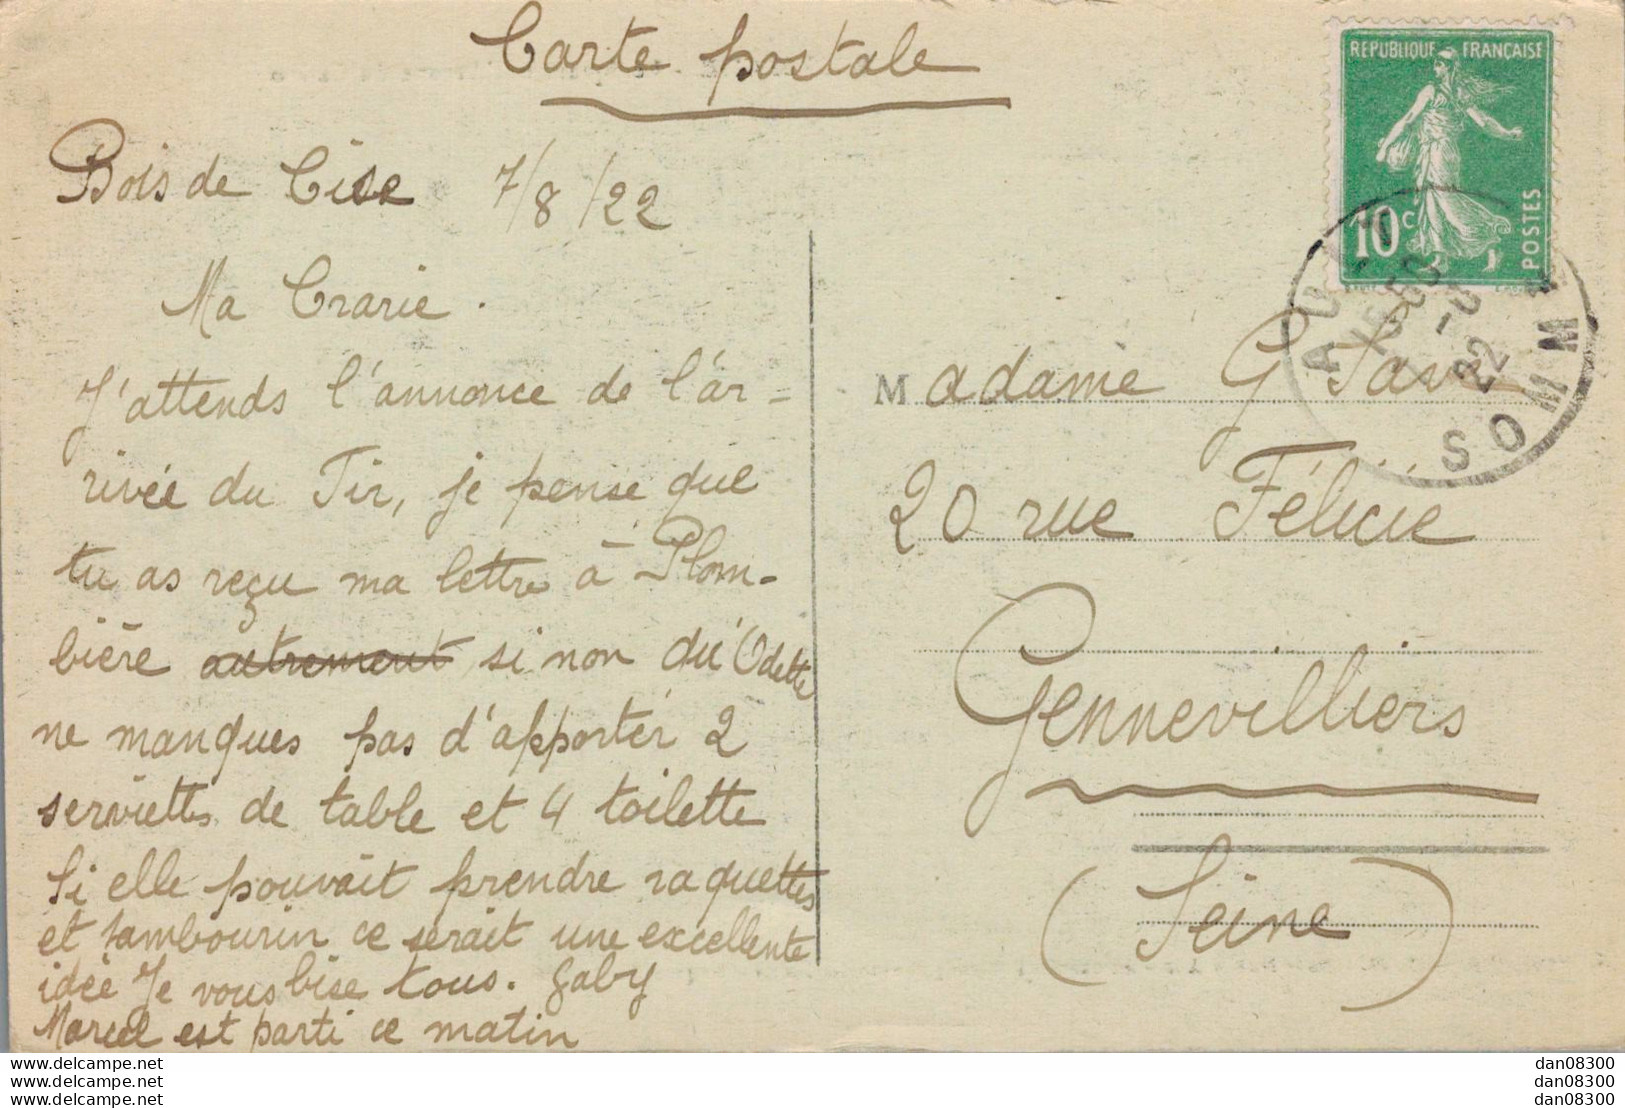 Carte postale
Bois de Cise 7/8/22
Ma Crarie.
J'attends l'annonce de l'ar=
rivée du Tir, je pense que
tu as reçu ma lettre à Plom-
bière autrement si non du' Odette
ne manques pas d'apporter 2
serviettes de table et 4 toilette
Si elle pouvait prendre raquettes
et tambourin ce serait une excellente
idée Je vous bise tous. Gaby
Marcel est parti ce matin
REPUBLIQUE FRANÇAISE
10c
POSTES
AULT
22
SOMME
Madame G
20 rue Félicie
Gennevilliers
(Seine)
https://www.delcampe.net
https://www.delcampe.net
https://www.delcampe.net
dan08300
dan08300
dan08300